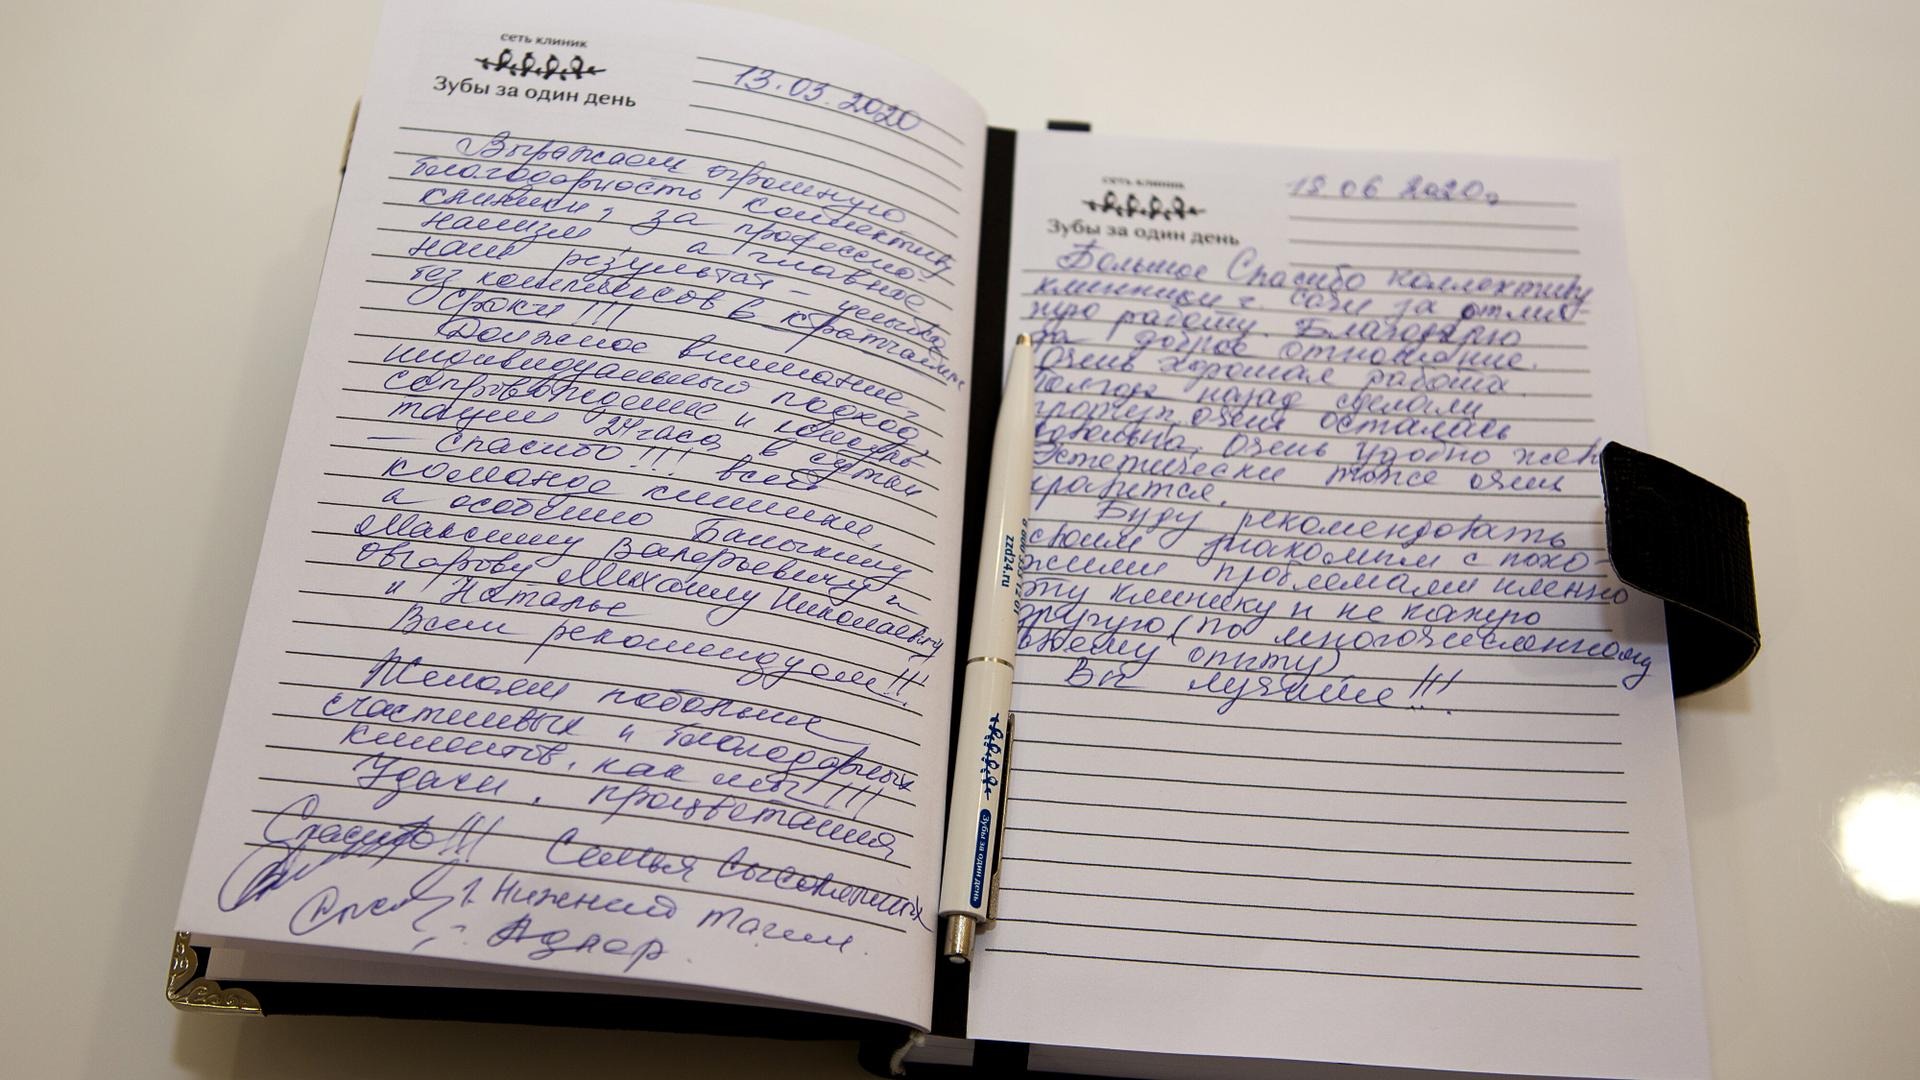 сеть клиник
Зубы за один день
13.03.2020
Выражаем огромную
благодарность коллективу
клиники, за професcио-
нализм а главное
наш результат – улыбка
без комплексов в кратчайшие
сроки!!!
Должное внимание,
индивидуальный подход,
сопровождение и консуль-
тации 24 часа в сутки
– спасибо!!! всей
команде клиники,
а особенно
Максиму Валерьевичу и
Михаилу Николаевичу
и Наталье
Всем рекомендуем!!!
Желаем побольше
счастливых и благодарных
клиентов, как мы!!!
Удачи, процветания
Спасибо!!! Семья
г. Нижний Тагил
г. Адлер.
сеть клиник
Зубы за один день
18.06 2020г
Большое Спасибо коллективу
клинники г. Сочи за отлич-
ную работу. Благодарю
за доброе отношение.
Очень хорошая работа.
назад сделали
протез. очень осталась
довольна. Очень удобно
Эстетически тоже очень
нравится.
Буду рекомендовать
своим знакомым с похо-
жими проблемами именно
эту клинику и не какую
другую (по многочисленному
своему опыту)
Вы лучшие!!!
zzd24.ru
Зубы за один день